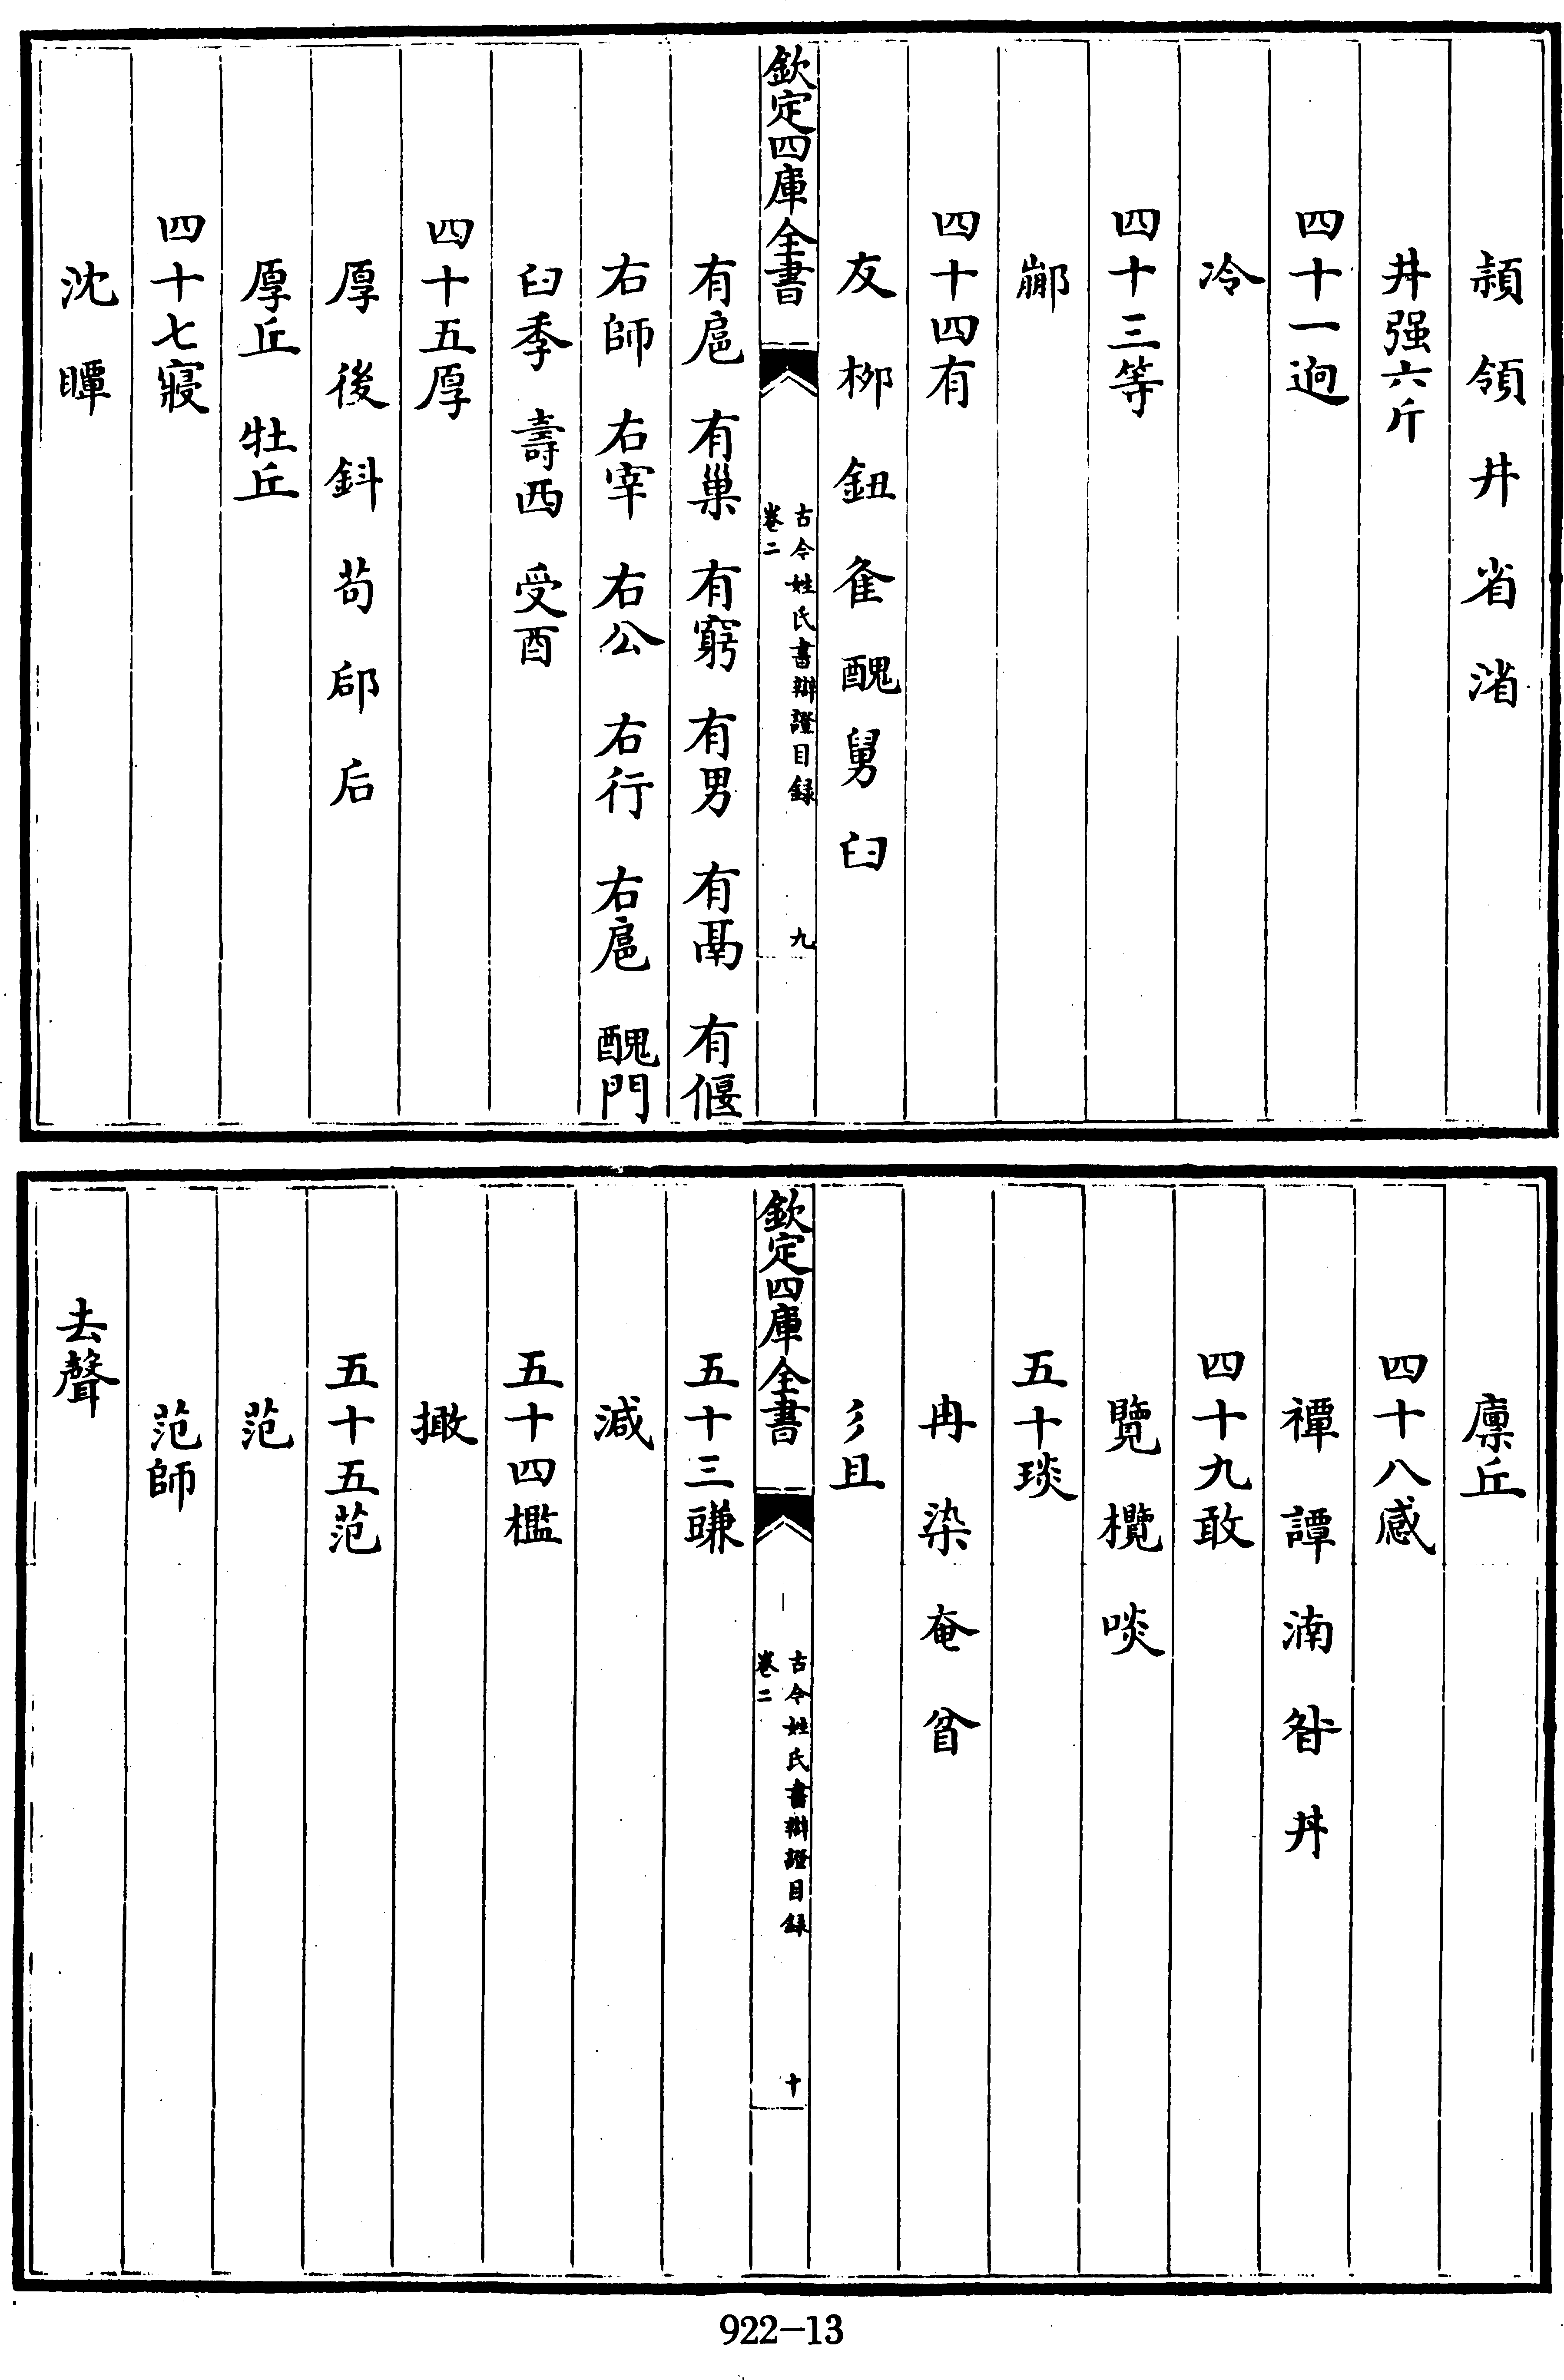 潁 領 井 省 渻
井强六斤
四十一迥
冷
四十三等
𨞙
四十四有
友 栁 鈕 㑾 醜 舅 臼
欽定四庫全書
古今姓氏書辯證目録
卷二
九
有扈 有巢 有窮 有男 有鬲 有偃
右師 右宰 右公 右行 右扈 醜門
臼季 壽西 受酉
四十五厚
厚 後 鈄 茍 郈 后
厚丘 牡丘
四十七寢
沈 瞫
廪丘
四十八感
禫 譚 湳 昝 丼
四十九敢
覽 欖 啖
五十琰
冉 染 奄 㑹
彡且
欽定四庫全書
古今姓氏書辯證目録
卷二
十
五十三豏
減
五十四檻
撖
五十五范
范
范師
去聲
922-13